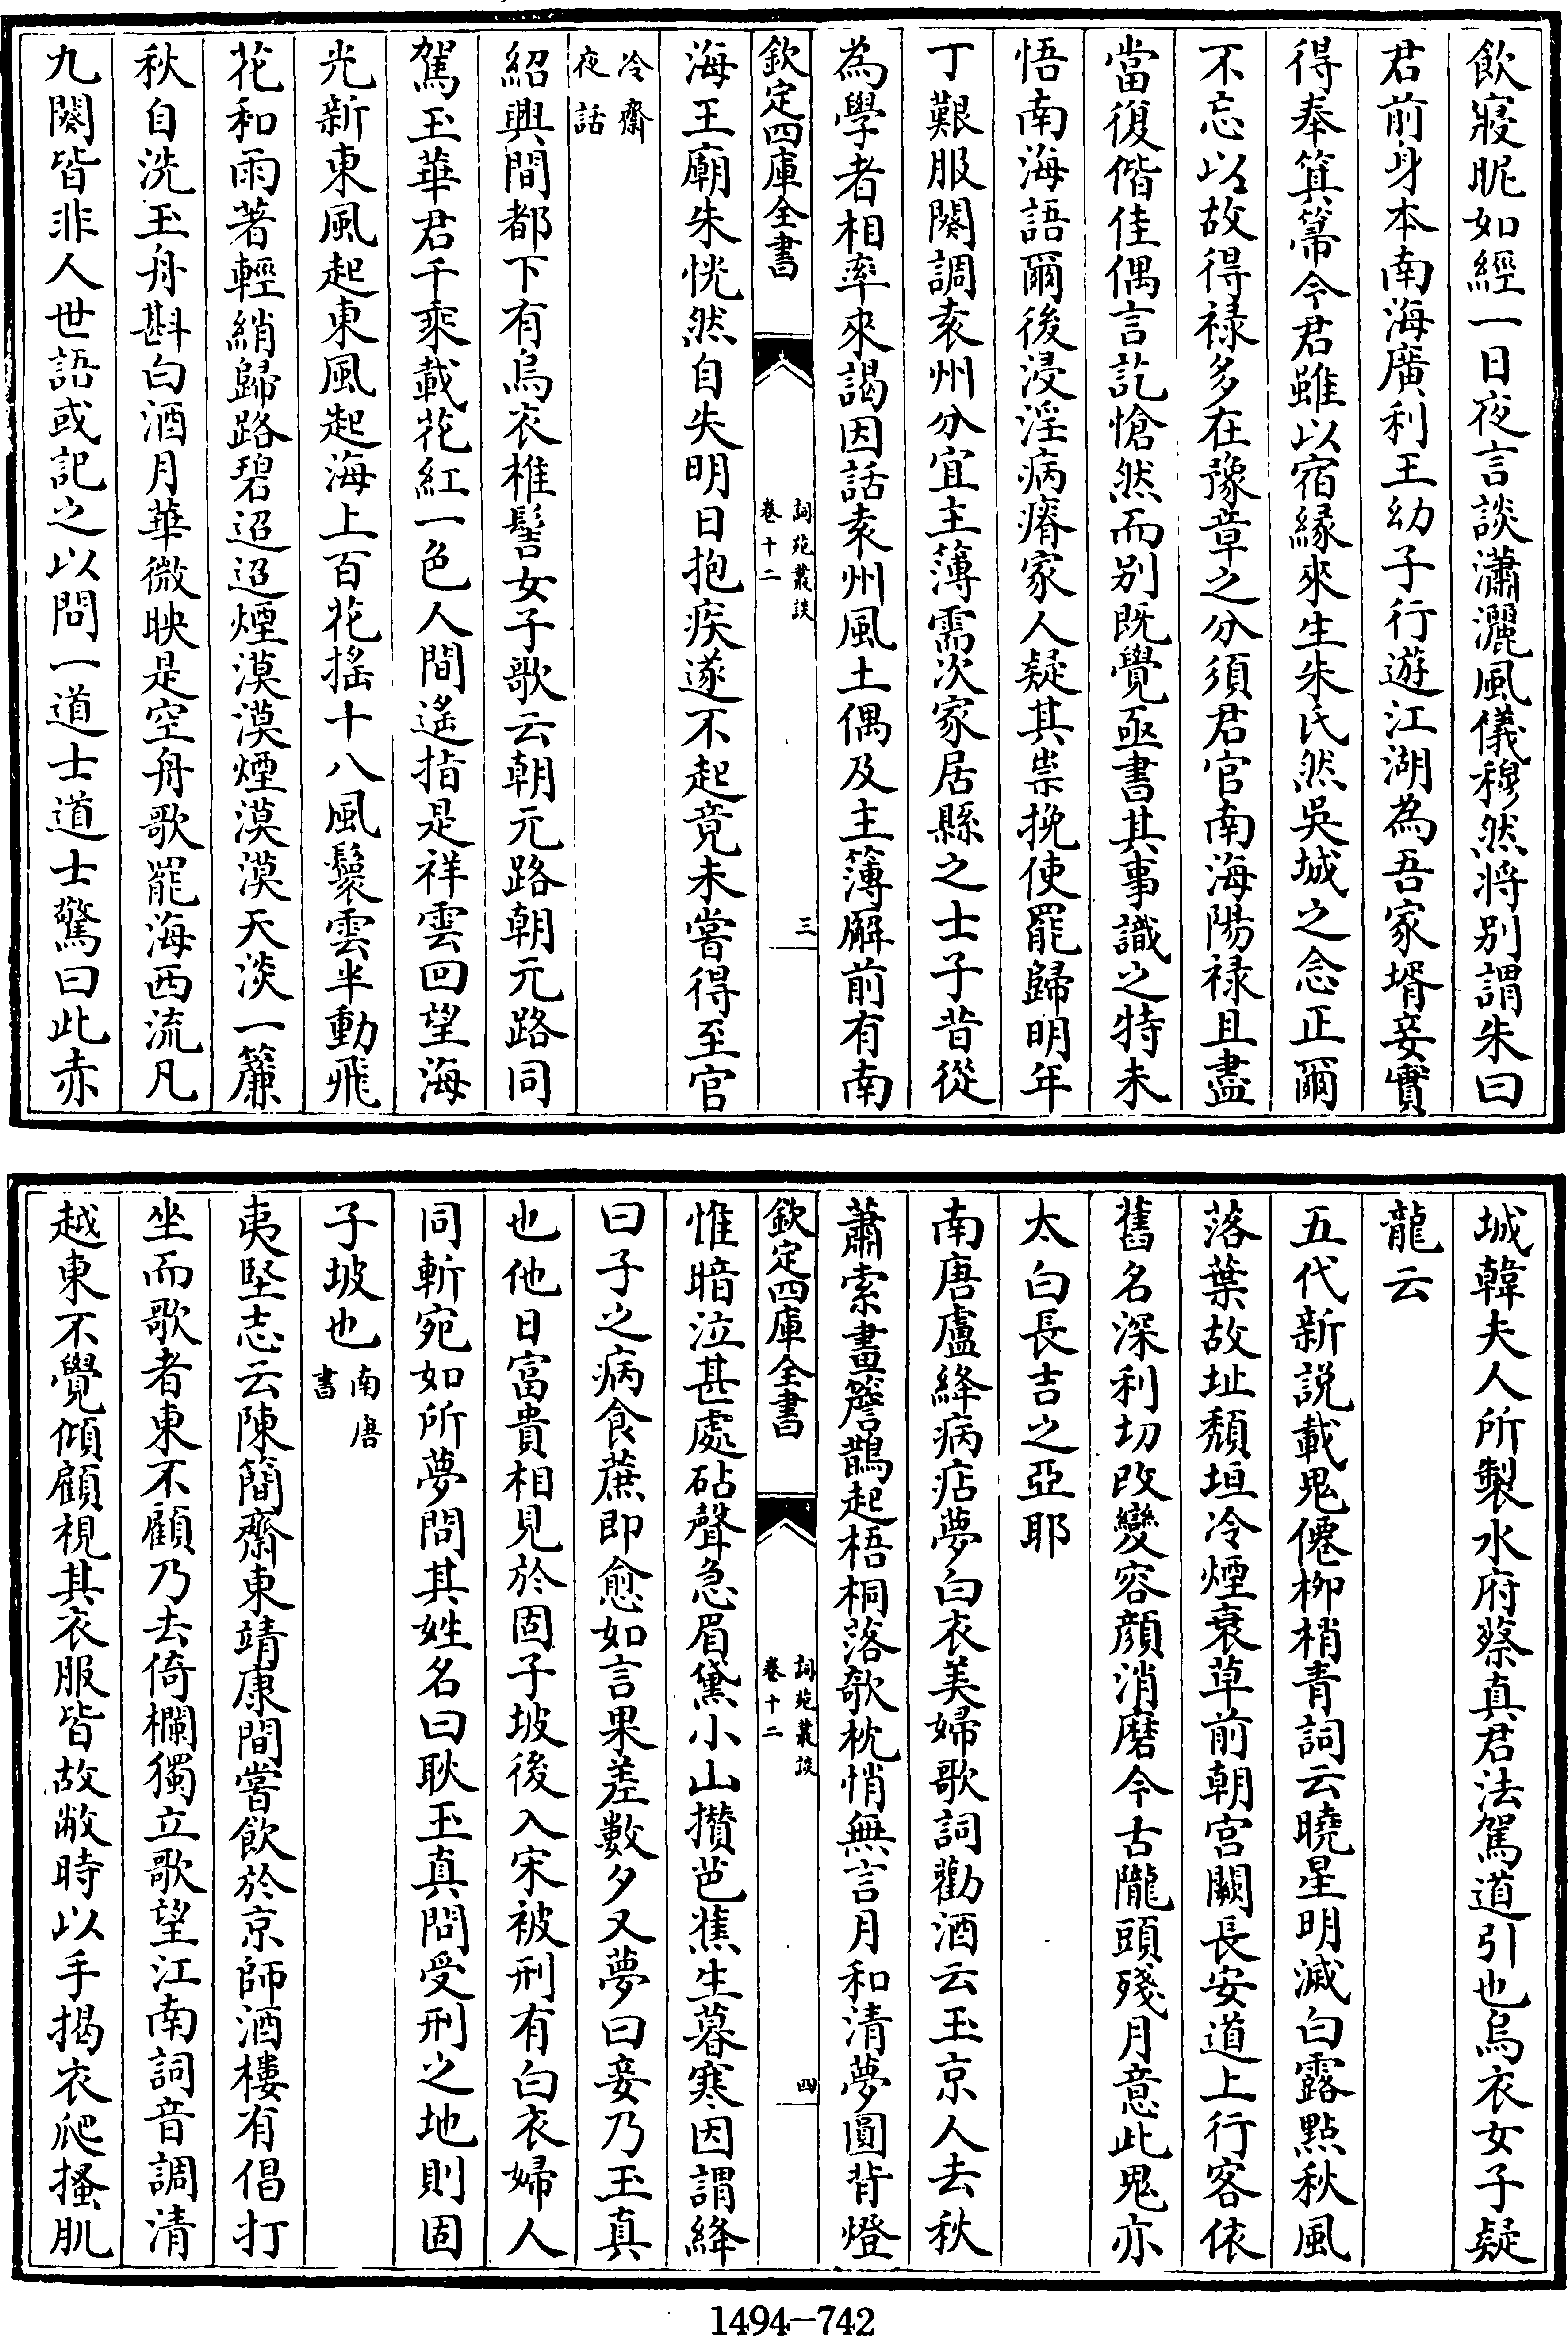 飲寢昵如經一日夜言談瀟灑風儀穆然将別謂朱曰
君前身本南海廣利王幼子行遊江湖為吾家壻妾實
得奉箕箒今君雖以宿緣來生朱氏然吳城之念正爾
不忘以故得禄多在豫章之分須君官南海陽禄且盡
當復偕佳偶言訖愴然而別既覺亟書其事識之特未
悟南海語爾後浸淫病瘠家人疑其祟挽使罷歸明年
丁艱服闋調袁州分宜主簿需次家居縣之士子昔從
為學者相率來謁因話袁州風土偶及主簿廨前有南
欽定四庫全書
詞苑叢談
卷十二
三
海王廟朱恍然自失明日抱疾遂不起竟未嘗得至官
冷齋
夜話
紹興間都下有烏衣椎髻女子歌云朝元路朝元路同
駕玉華君千乘載花紅一色人間遙指是祥雲回望海
光新東風起東風起海上百花摇十八風鬟雲半動飛
花和雨著輕綃歸路碧迢迢煙漠漠煙漠漠天淡一簾
秋自洗玉舟斟白酒月華微映是空舟歌罷海西流凡
九闋皆非人世語或記之以問一道士道士驚曰此赤
城韓夫人所製水府蔡真君法駕道引也烏衣女子疑
龍云
五代新説載鬼僊栁梢青詞云曉星明滅白露點秋風
落葉故址頽垣冷煙衰草前朝宮闕長安道上行客依
舊名深利切改變容顔消磨今古隴頭殘月意此鬼亦
太白長吉之亞耶
南唐盧絳病痁夢白衣美婦歌詞勸酒云玉京人去秋
蕭索畫簷鵲起梧桐落欹枕悄無言月和清夢圓背燈
欽定四庫全書
詞苑叢談
卷十二
四
惟暗泣甚處砧聲急眉黛小山攢芭蕉生暮寒因謂絳
曰子之病食蔗即愈如言果差數夕又夢曰妾乃玉真
也他日富貴相見於固子坡後入宋被刑有白衣婦人
同斬宛如所夢問其姓名曰耿玉真問受刑之地則固
子坡也
南唐
書
夷堅志云陳簡齋東靖康間嘗飲於京師酒樓有倡打
坐而歌者東不顧乃去倚欄獨立歌望江南詞音調清
越東不覺傾顧視其衣服皆故敝時以手揭衣爬搔肌
1494-742